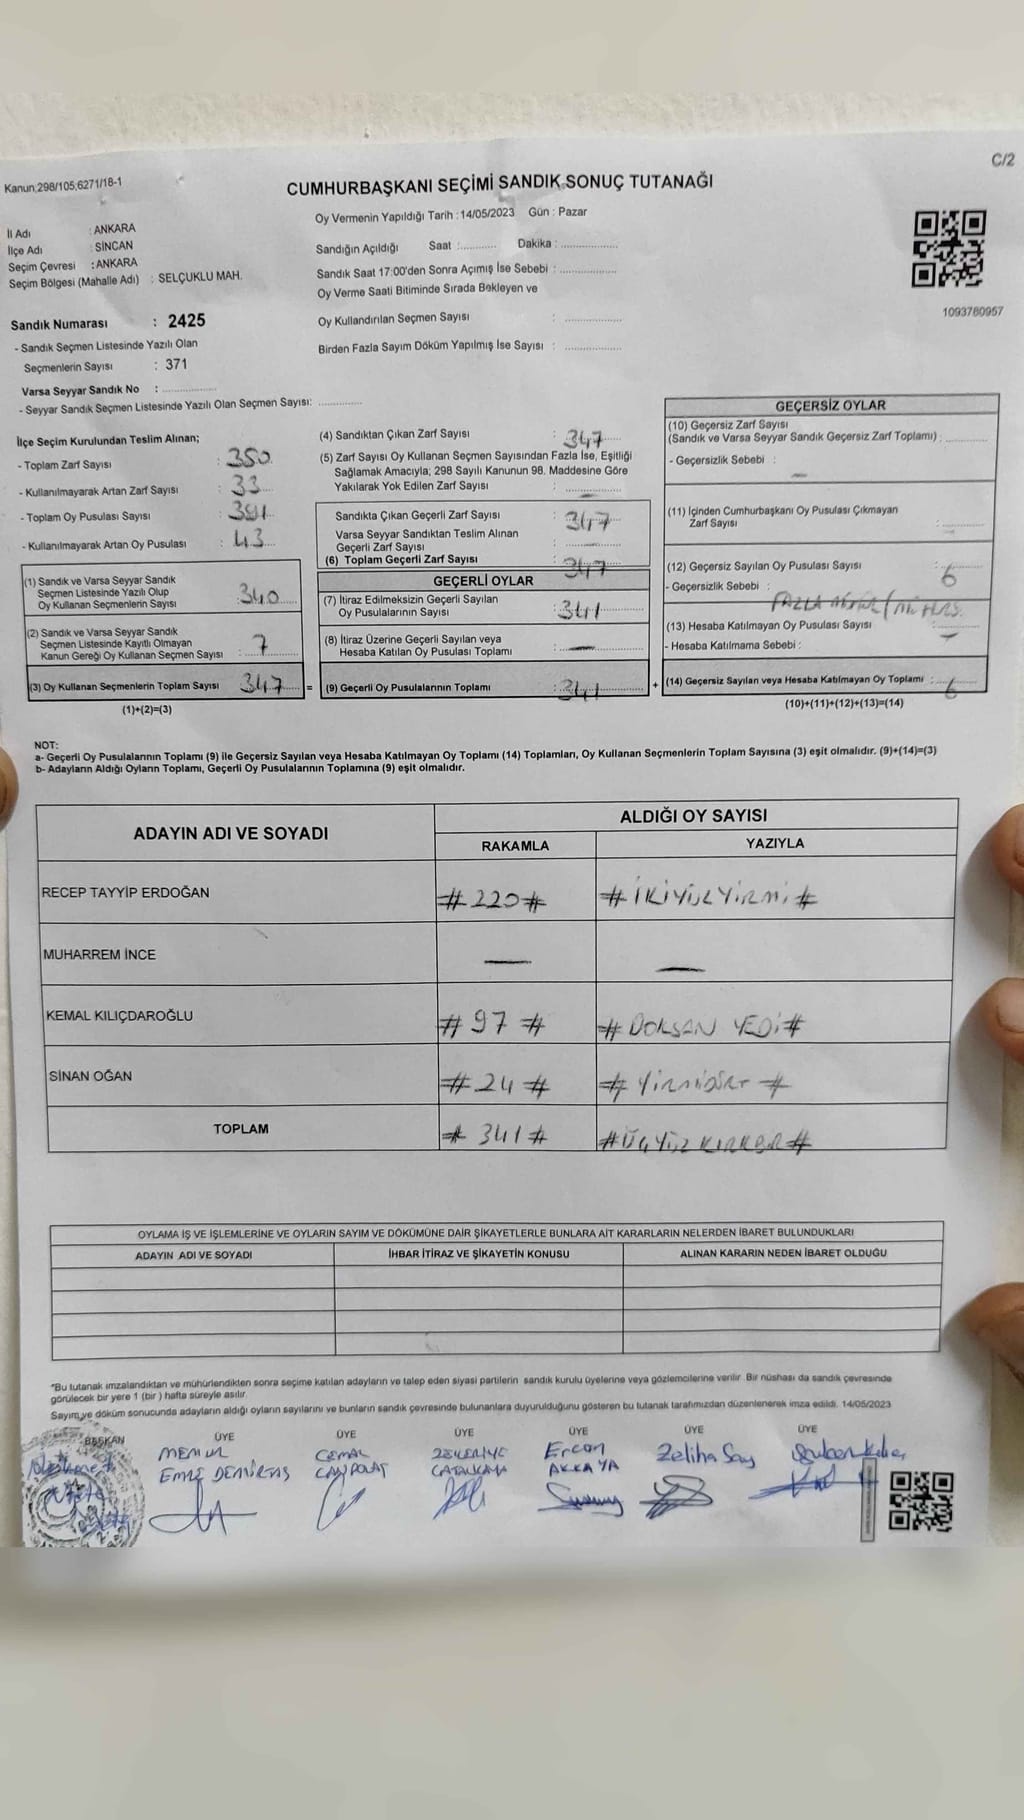 C/2
Kanun,298/105,6271/18-1
CUMHURBAŞKANI SEÇİMİ SANDIK SONUÇ TUTANAĞI
Oy Vermenin Yapıldığı Tarih : 14/05/2023 Gün : Pazar
İl Adı : ANKARA
İlçe Adı : SİNCAN
Seçim Çevresi : ANKARA
Seçim Bölgesi (Mahalle Adı) : SELÇUKLU MAH.
Sandığın Açıldığı Saat :........... Dakika :...............
Sandık Saat 17:00'den Sonra Açımış İse Sebebi :...............
Oy Verme Saati Bitiminde Sırada Bekleyen ve
Oy Kullandırılan Seçmen Sayısı : ...............
Birden Fazla Sayım Döküm Yapılmış İse Sayısı : ...............
1093780957
Sandık Numarası : 2425
- Sandık Seçmen Listesinde Yazılı Olan
Seçmenlerin Sayısı : 371
Varsa Seyyar Sandık No : ..............
- Seyyar Sandık Seçmen Listesinde Yazılı Olan Seçmen Sayısı: ............
İlçe Seçim Kurulundan Teslim Alınan;
- Toplam Zarf Sayısı : 350
- Kullanılmayarak Artan Zarf Sayısı : 33
- Toplam Oy Pusulası Sayısı :
- Kullanılmayarak Artan Oy Pusulası : 43
(1) Sandık ve Varsa Seyyar Sandık
Seçmen Listesinde Yazılı Olup
Oy Kullanan Seçmenlerin Sayısı : 340
(2) Sandık ve Varsa Seyyar Sandık
Seçmen Listesinde Kayıtlı Olmayan
Kanun Gereği Oy Kullanan Seçmen Sayısı : 7
(3) Oy Kullanan Seçmenlerin Toplam Sayısı 347 =
(1)+(2)=(3)
(4) Sandıktan Çıkan Zarf Sayısı : 347
(5) Zarf Sayısı Oy Kullanan Seçmen Sayısından Fazla İse, Eşitliği
Sağlamak Amacıyla; 298 Sayılı Kanunun 98. Maddesine Göre
Yakılarak Yok Edilen Zarf Sayısı : —
Sandıkta Çıkan Geçerli Zarf Sayısı : 347
Varsa Seyyar Sandıktan Teslim Alınan
Geçerli Zarf Sayısı :
(6) Toplam Geçerli Zarf Sayısı : 347
GEÇERLİ OYLAR
(7) İtiraz Edilmeksizin Geçerli Sayılan
Oy Pusulalarının Sayısı : 341
(8) İtiraz Üzerine Geçerli Sayılan veya
Hesaba Katılan Oy Pusulası Toplamı : —
(9) Geçerli Oy Pusulalarının Toplamı : 341 +
GEÇERSİZ OYLAR
(10) Geçersiz Zarf Sayısı
(Sandık ve Varsa Seyyar Sandık Geçersiz Zarf Toplamı) : ............
- Geçersizlik Sebebi : —
(11) İçinden Cumhurbaşkanı Oy Pusulası Çıkmayan
Zarf Sayısı :
(12) Geçersiz Sayılan Oy Pusulası Sayısı : 6
- Geçersizlik Sebebi : FAZLA
(13) Hesaba Katılmayan Oy Pusulası Sayısı : —
- Hesaba Katılmama Sebebi :
(14) Geçersiz Sayılan veya Hesaba Katılmayan Oy Toplamı : 6
(10)+(11)+(12)+(13)=(14)
NOT:
a- Geçerli Oy Pusulalarının Toplamı (9) ile Geçersiz Sayılan veya Hesaba Katılmayan Oy Toplamı (14) Toplamları, Oy Kullanan Seçmenlerin Toplam Sayısına (3) eşit olmalıdır. (9)+(14)=(3)
b- Adayların Aldığı Oyların Toplamı, Geçerli Oy Pusulalarının Toplamına (9) eşit olmalıdır.
ADAYIN ADI VE SOYADI ALDIĞI OY SAYISI
RAKAMLA YAZIYLA
RECEP TAYYİP ERDOĞAN #220# #İKİYÜZYİRMİ#
MUHARREM İNCE — —
KEMAL KILIÇDAROĞLU #97# #DOKSAN YEDİ#
SİNAN OĞAN #24# #YİRMİDÖRT#
TOPLAM #341# #ÜÇYÜZKIRKBİR#
OYLAMA İŞ VE İŞLEMLERİNE VE OYLARIN SAYIM VE DÖKÜMÜNE DAİR ŞİKAYETLERLE BUNLARA AİT KARARLARIN NELERDEN İBARET BULUNDUKLARI
ADAYIN ADI VE SOYADI İHBAR İTİRAZ VE ŞİKAYETİN KONUSU ALINAN KARARIN NEDEN İBARET OLDUĞU
*Bu tutanak imzalandıktan ve mühürlendikten sonra seçime katılan adayların ve talep eden siyasi partilerin sandık kurulu üyelerine veya gözlemcilerine verilir. Bir nüshası da sandık çevresinde
görülecek bir yere 1 (bir ) hafta süreyle asılır.
Sayım ve döküm sonucunda adayların aldığı oyların sayılarını ve bunların sandık çevresinde bulunanlara duyurulduğunu gösteren bu tutanak tarafımızdan düzenlenerek imza edildi. 14/05/2023
BAŞKAN ÜYE ÜYE ÜYE ÜYE ÜYE ÜYE
MEMUR CEMAL ZEKERİYE Ercan Zeliha Say
EMRE DEMİRTAŞ CANPOLAT ÇATALKAYA AKKAYA